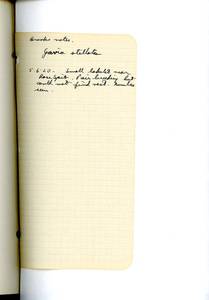 Brooks notes.
Gavia stellata
5.6.60. Small lakelet near
Rose Spit. Pair breeding but
could not find nest. Females
seen.